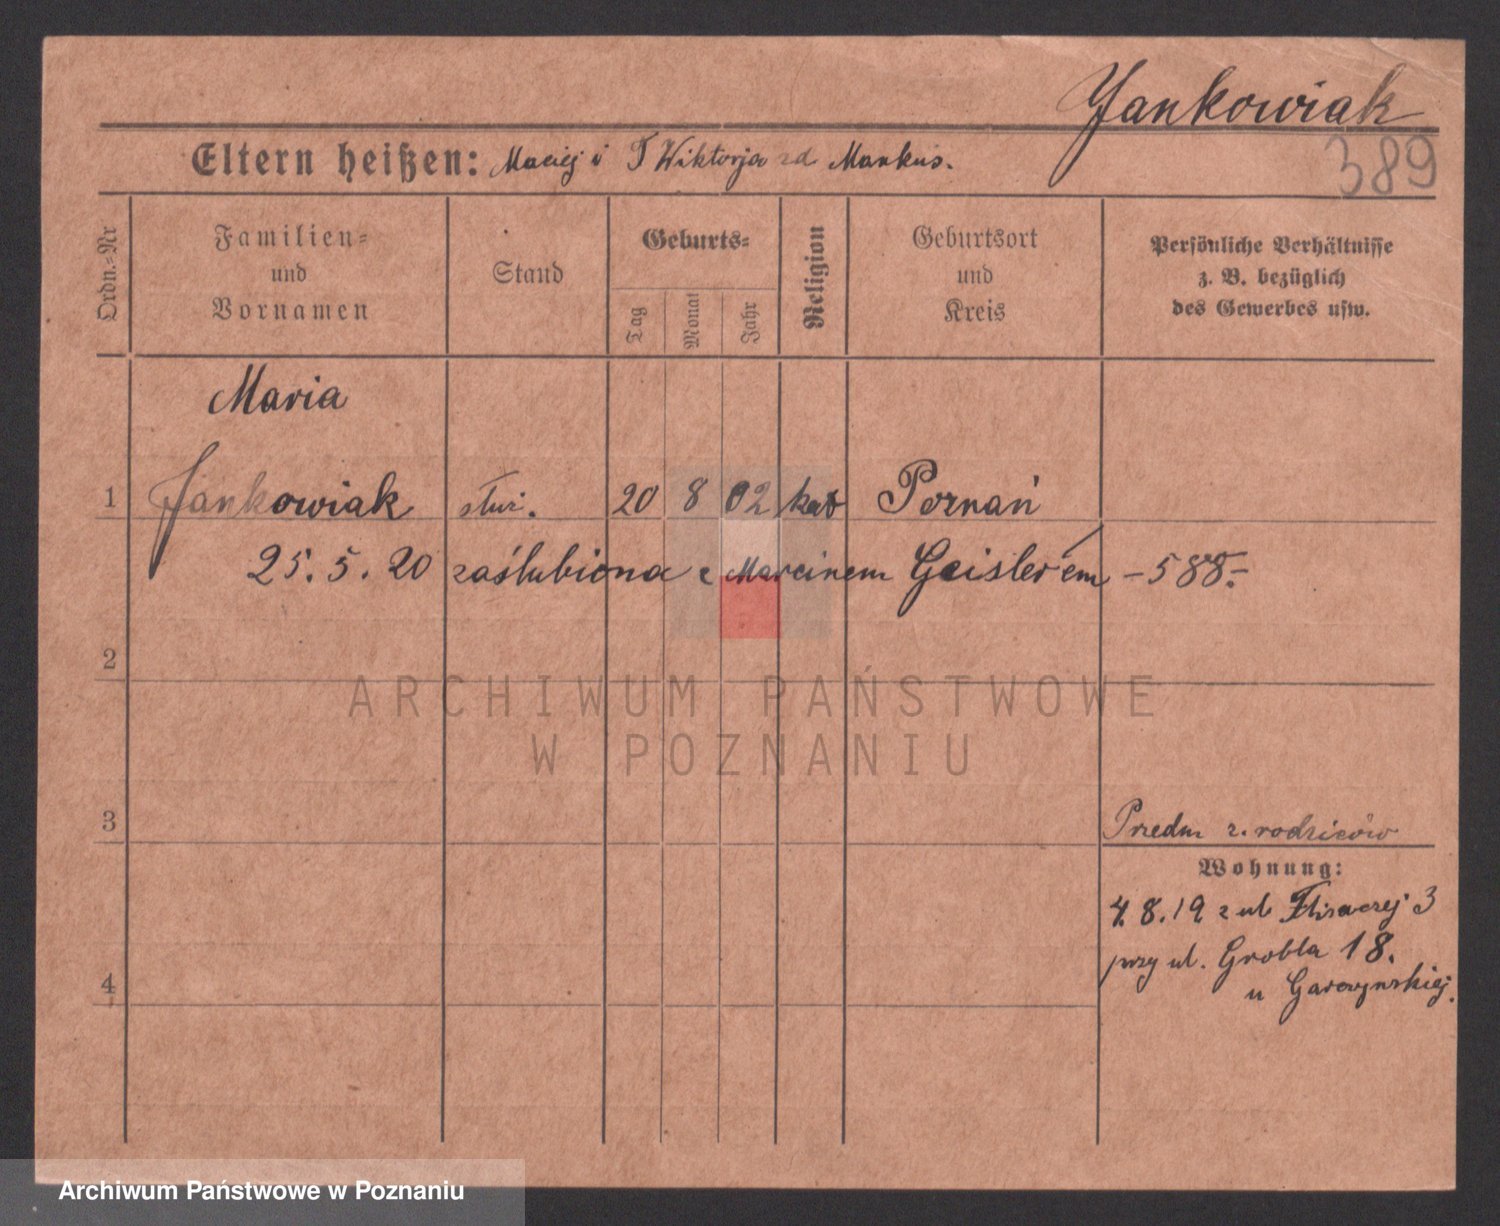 Jankowiak
389
Eltern heißen: Maciej i T Wiktorja zd Markus.
Ordn.-Nr
Familien-
und
Vornamen
Stand
Geburts-
Tag
Monat
Jahr
Religion
Geburtsort
und
Kreis
Persönliche Verhältnisse
z. B. bezüglich
des Gewerbes usw.
Maria
1 Jankowiak służ. 20 8 02 kat Poznań
25. 5. 20 zaślubiona z Marcinem Geislerem – 588.–
2
ARCHIWUM PAŃSTWOWE
W POZNANIU
3
Przedm z. rodziców
Wohnung:
4. 8. 19 z ul 3
przy ul. Grobla 18.
4
u Garczynskiej.
Archiwum Państwowe w Poznaniu